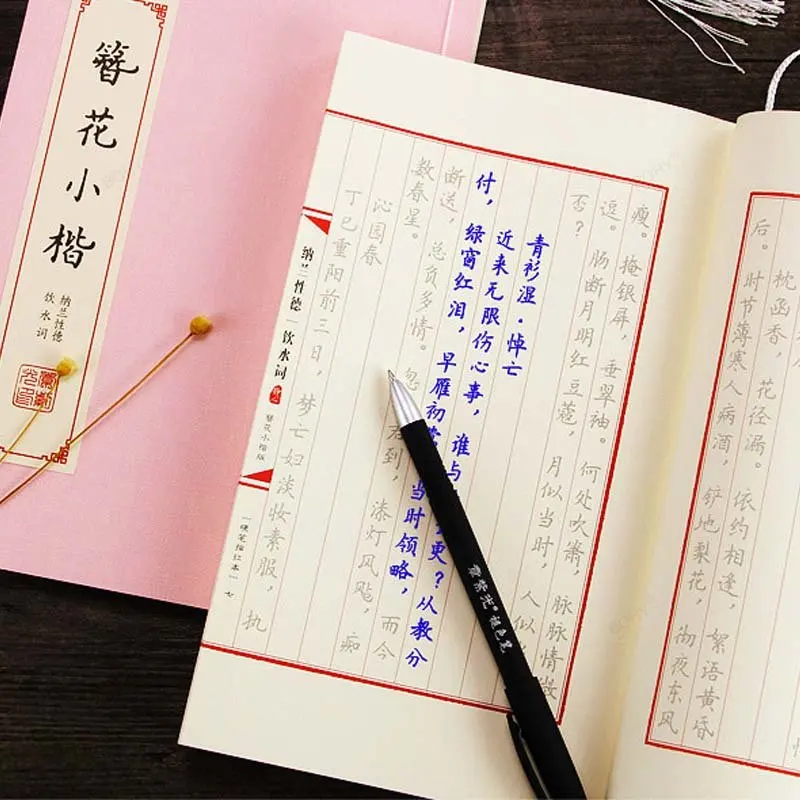 簪花小楷
纳兰性德
饮水词
枕函香,花径漏。依约相逢,絮语黄昏
后。时节薄寒人病酒,铲地梨花,彻夜东风
瘦。掩银屏,垂翠袖。何处吹箫,脉脉情微
逗。肠断月明红豆蔻,月似当时,人似
否?
青衫湿·悼亡
近来无限伤心事,谁与更?从教分
付,绿窗红泪,早雁初当时领略,而今
断送,总负多情。忽君到,漆灯风飐,痴
数春星。
沁园春
丁巳重阳前三日,梦亡妇淡妆素服,执
纳兰性德
饮水词
簪花小楷版
「硬笔描红本」
七
紫光®褪色笔